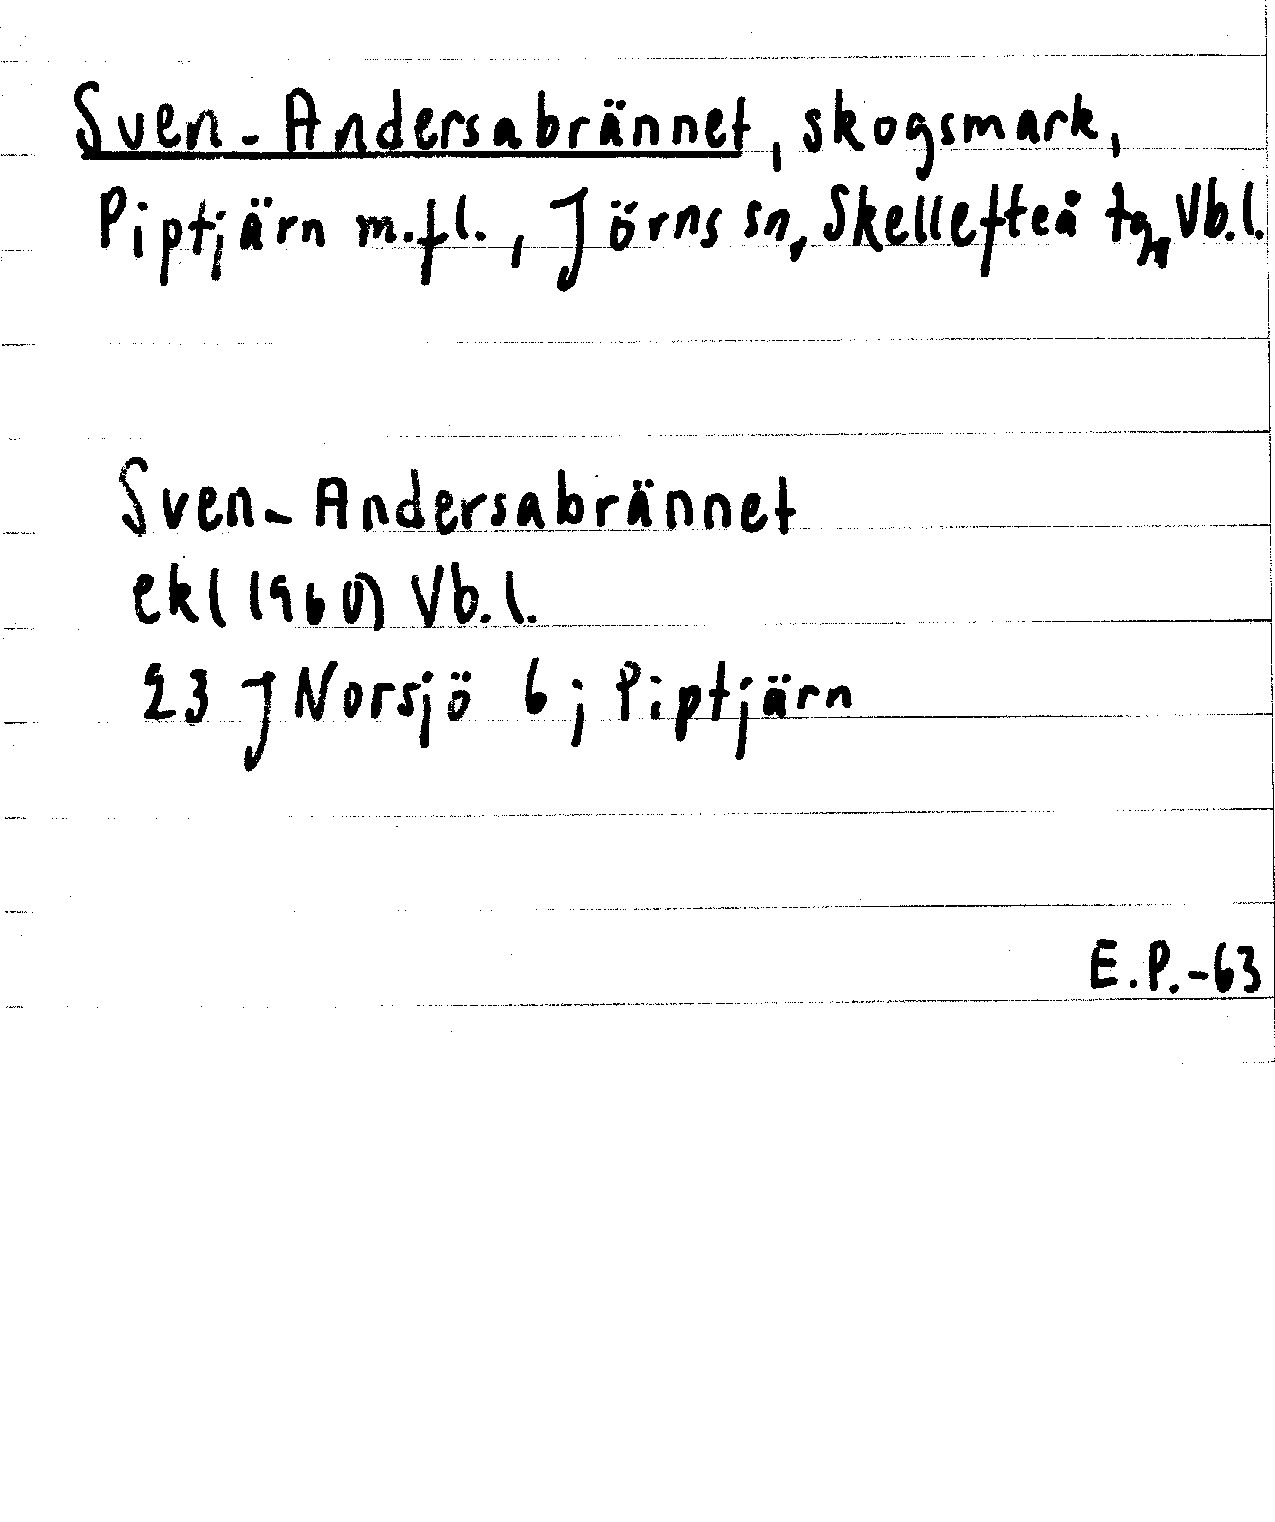 Sven-Andersabrännet, skogsmark,
Piptjärn m.fl., Jörns sn, Skellefteå tg, Vb.l.
Sven-Andersabrännet
ekl (1960) Vb.l.
23 J Norsjö 6; Piptjärn
E.P.-63